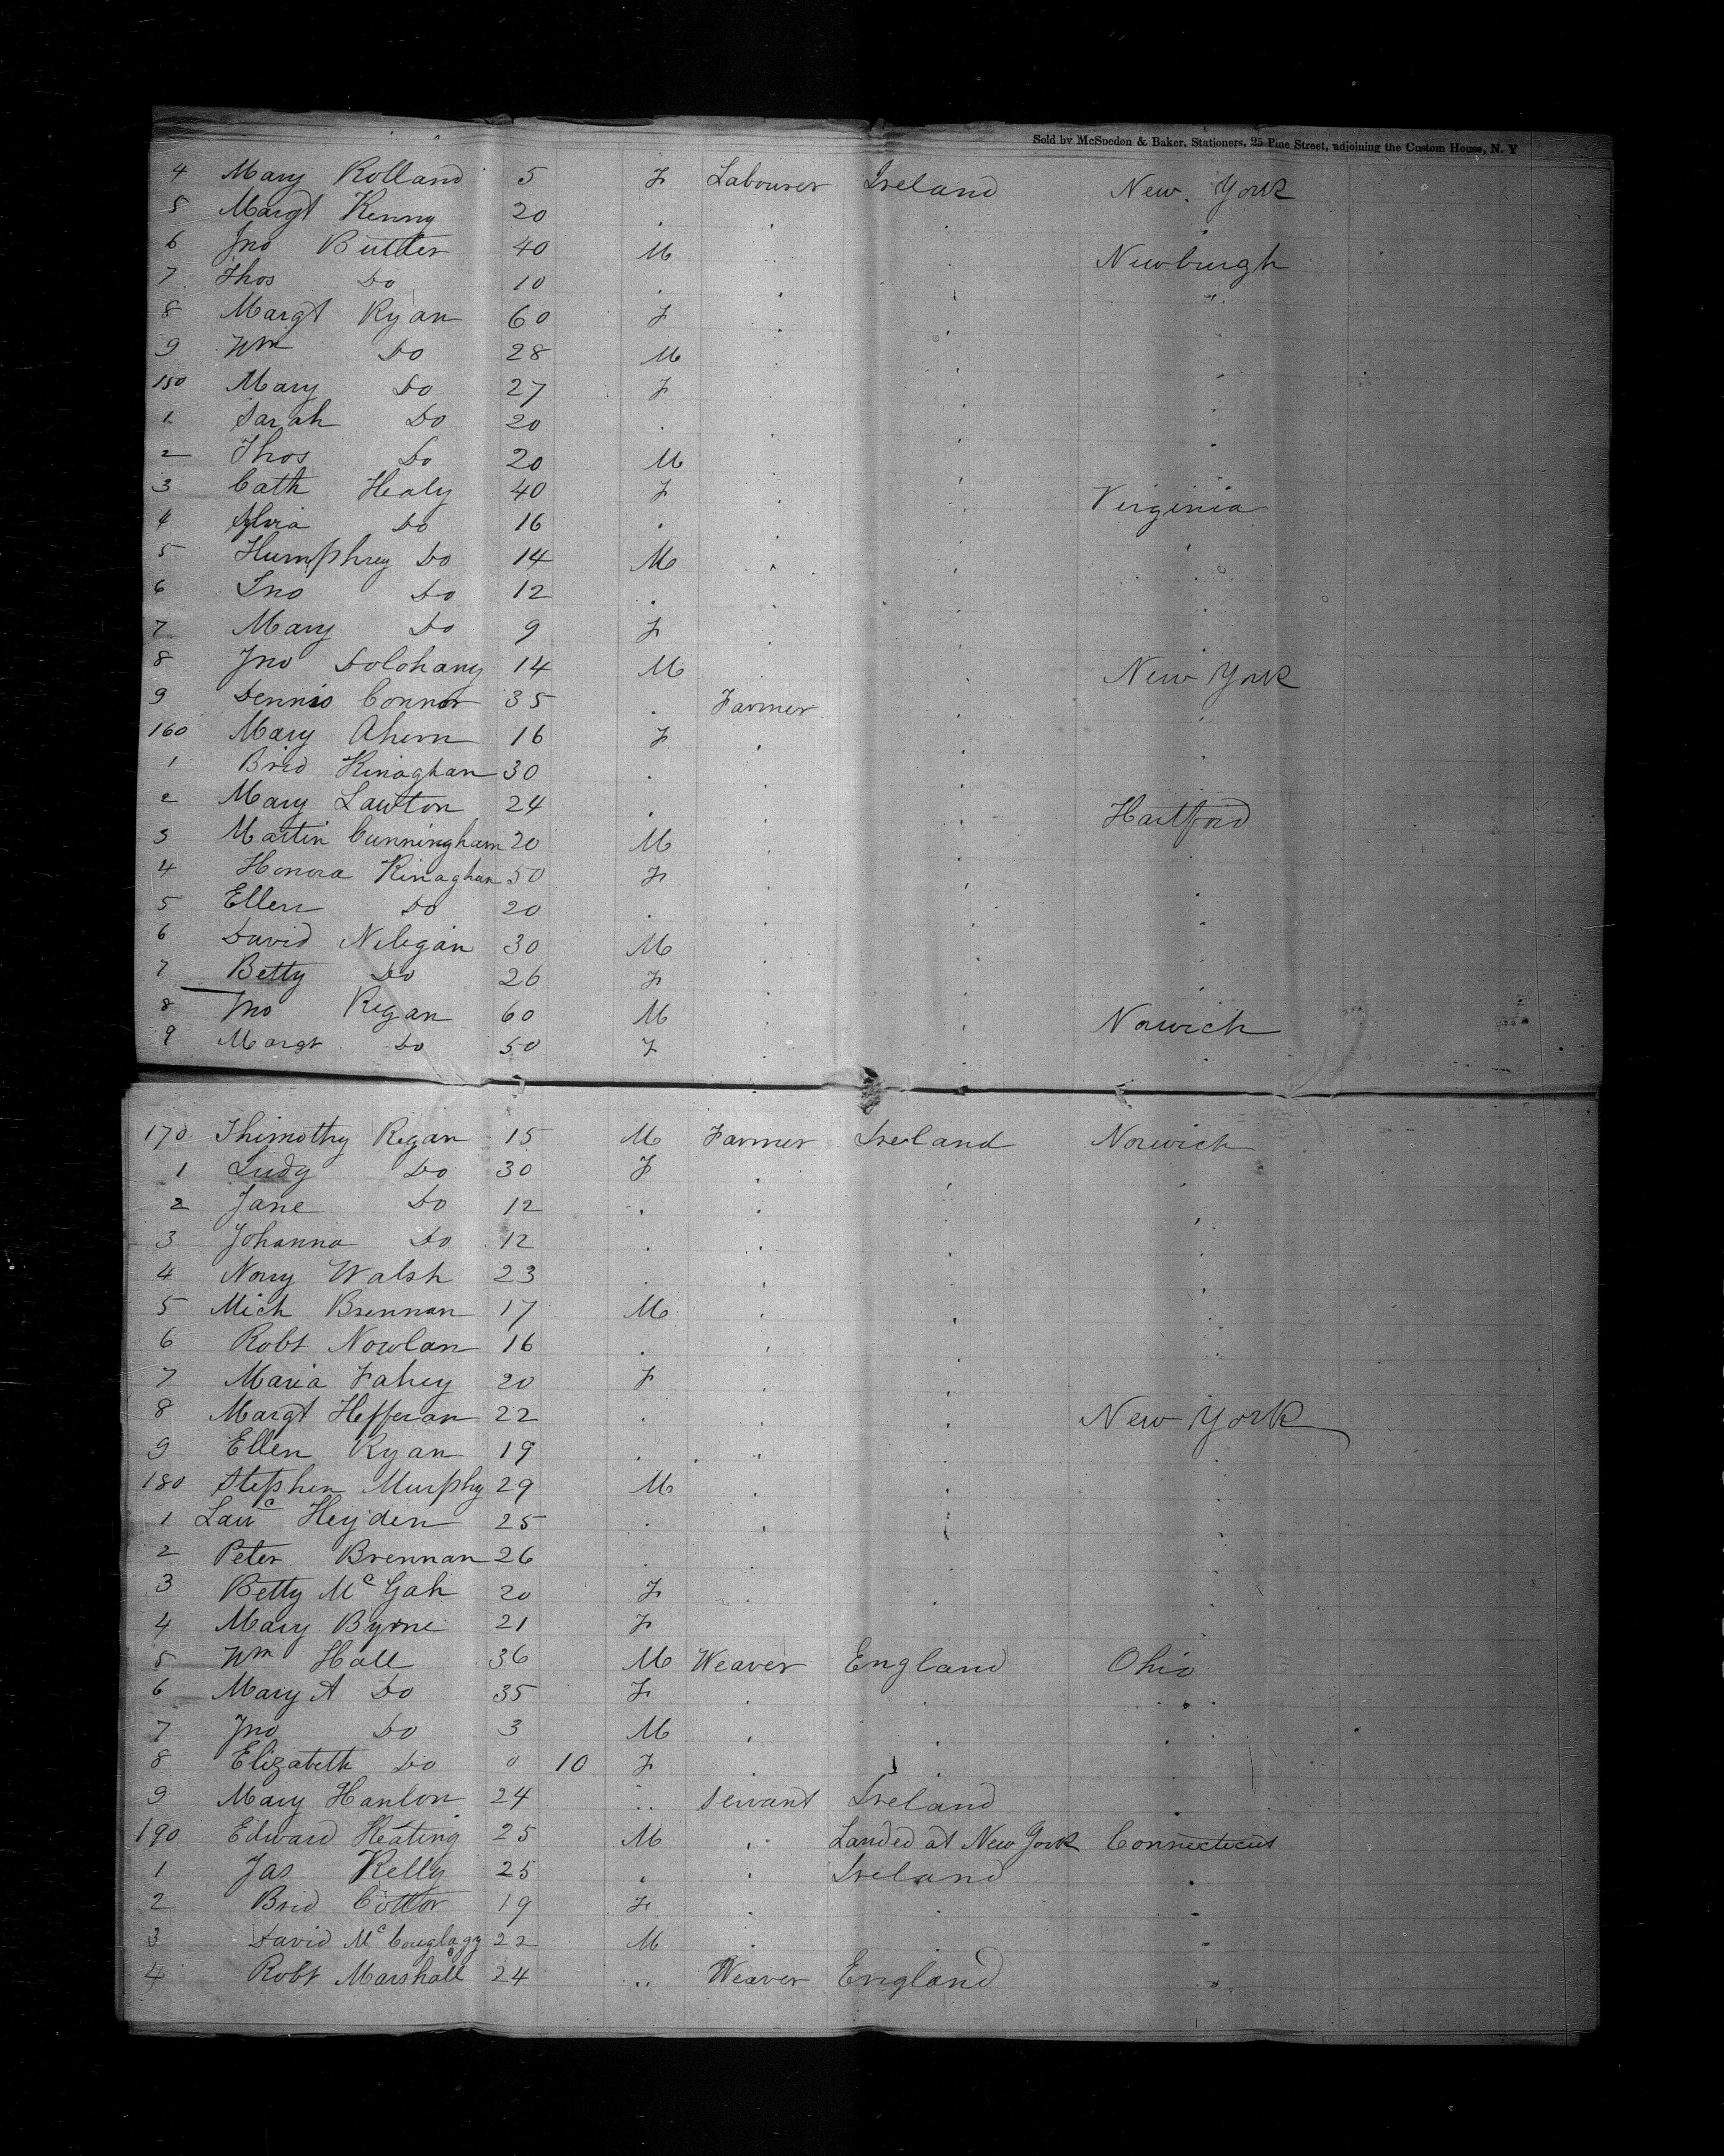 Sold by McSpedon & Baker, Stationers, 25 Pine Street, adjoining the Custom House, N. Y
4 Mary Rolland 5 F Labourer Ireland New York
5 Margt Kenny 20 . . . "
6 Jno Butler 40 M " . Newburgh
7 Thos Do 10 . . . "
8 Margt Ryan 60 F . . .
9 Wm Do 28 M . . .
150 Mary Do 27 F . . .
1 Sarah Do 20 . . . .
2 Thos Do 20 M . . .
3 Cath Healy 40 F . . Virginia
4 Do 16 . . . .
5 Humphrey Do 14 M . . .
6 Jno Do 12 . . . .
7 Mary Do 9 F . . .
8 Jno Dolohany 14 M . . New York
9 Dennis Connor 35 . Farmer . .
160 Mary Ahern 16 F . . .
1 Brid Kinaghan 30 . . . .
2 Mary Lawton 24 . . . Hartford
3 Martin Cunningham 20 M . . .
4 Honora Kinaghan 50 F . . .
5 Ellen Do 20 . . . .
6 David Neligan 30 M . . .
7 Betty Do 26 F . . .
8 Jno Regan 60 M . . Norwich
9 Margt Do 50 F . . .
170 Thimothy Regan 15 M Farmer Ireland Norwich
1 Judy Do 30 F . . .
2 Jane Do 12 . . . .
3 Johanna Do 12 . . . .
4 Nory Walsh 23 . . . .
5 Mich Brennan 17 M . . .
6 Robt Nowlan 16 . . . .
7 Maria Fahey 20 F . . .
8 Margt Hefferan 22 . . . New York
9 Ellen Ryan 19 . " . .
180 Stephen Murphy 29 M . . .
1 Lawc Heyden 25 . . . .
2 Peter Brennan 26 . . . .
3 Betty McGah 20 F . . .
4 Mary Byrne 21 F . . .
5 Wm Hall 36 M Weaver England Ohio
6 Mary A Do 35 F . . "
7 Jno Do 3 M . . .
8 Elizabeth Do 0 10 F . . .
9 Mary Hanlon 24 " servant Ireland .
190 Edward Keating 25 M " Landed at New York Connecticut
1 Jas Kelly 25 . . Ireland .
2 Brid Cottor 19 F . . .
3 David 22 M . . "
4 Robt Marshall 24 " Weaver England "